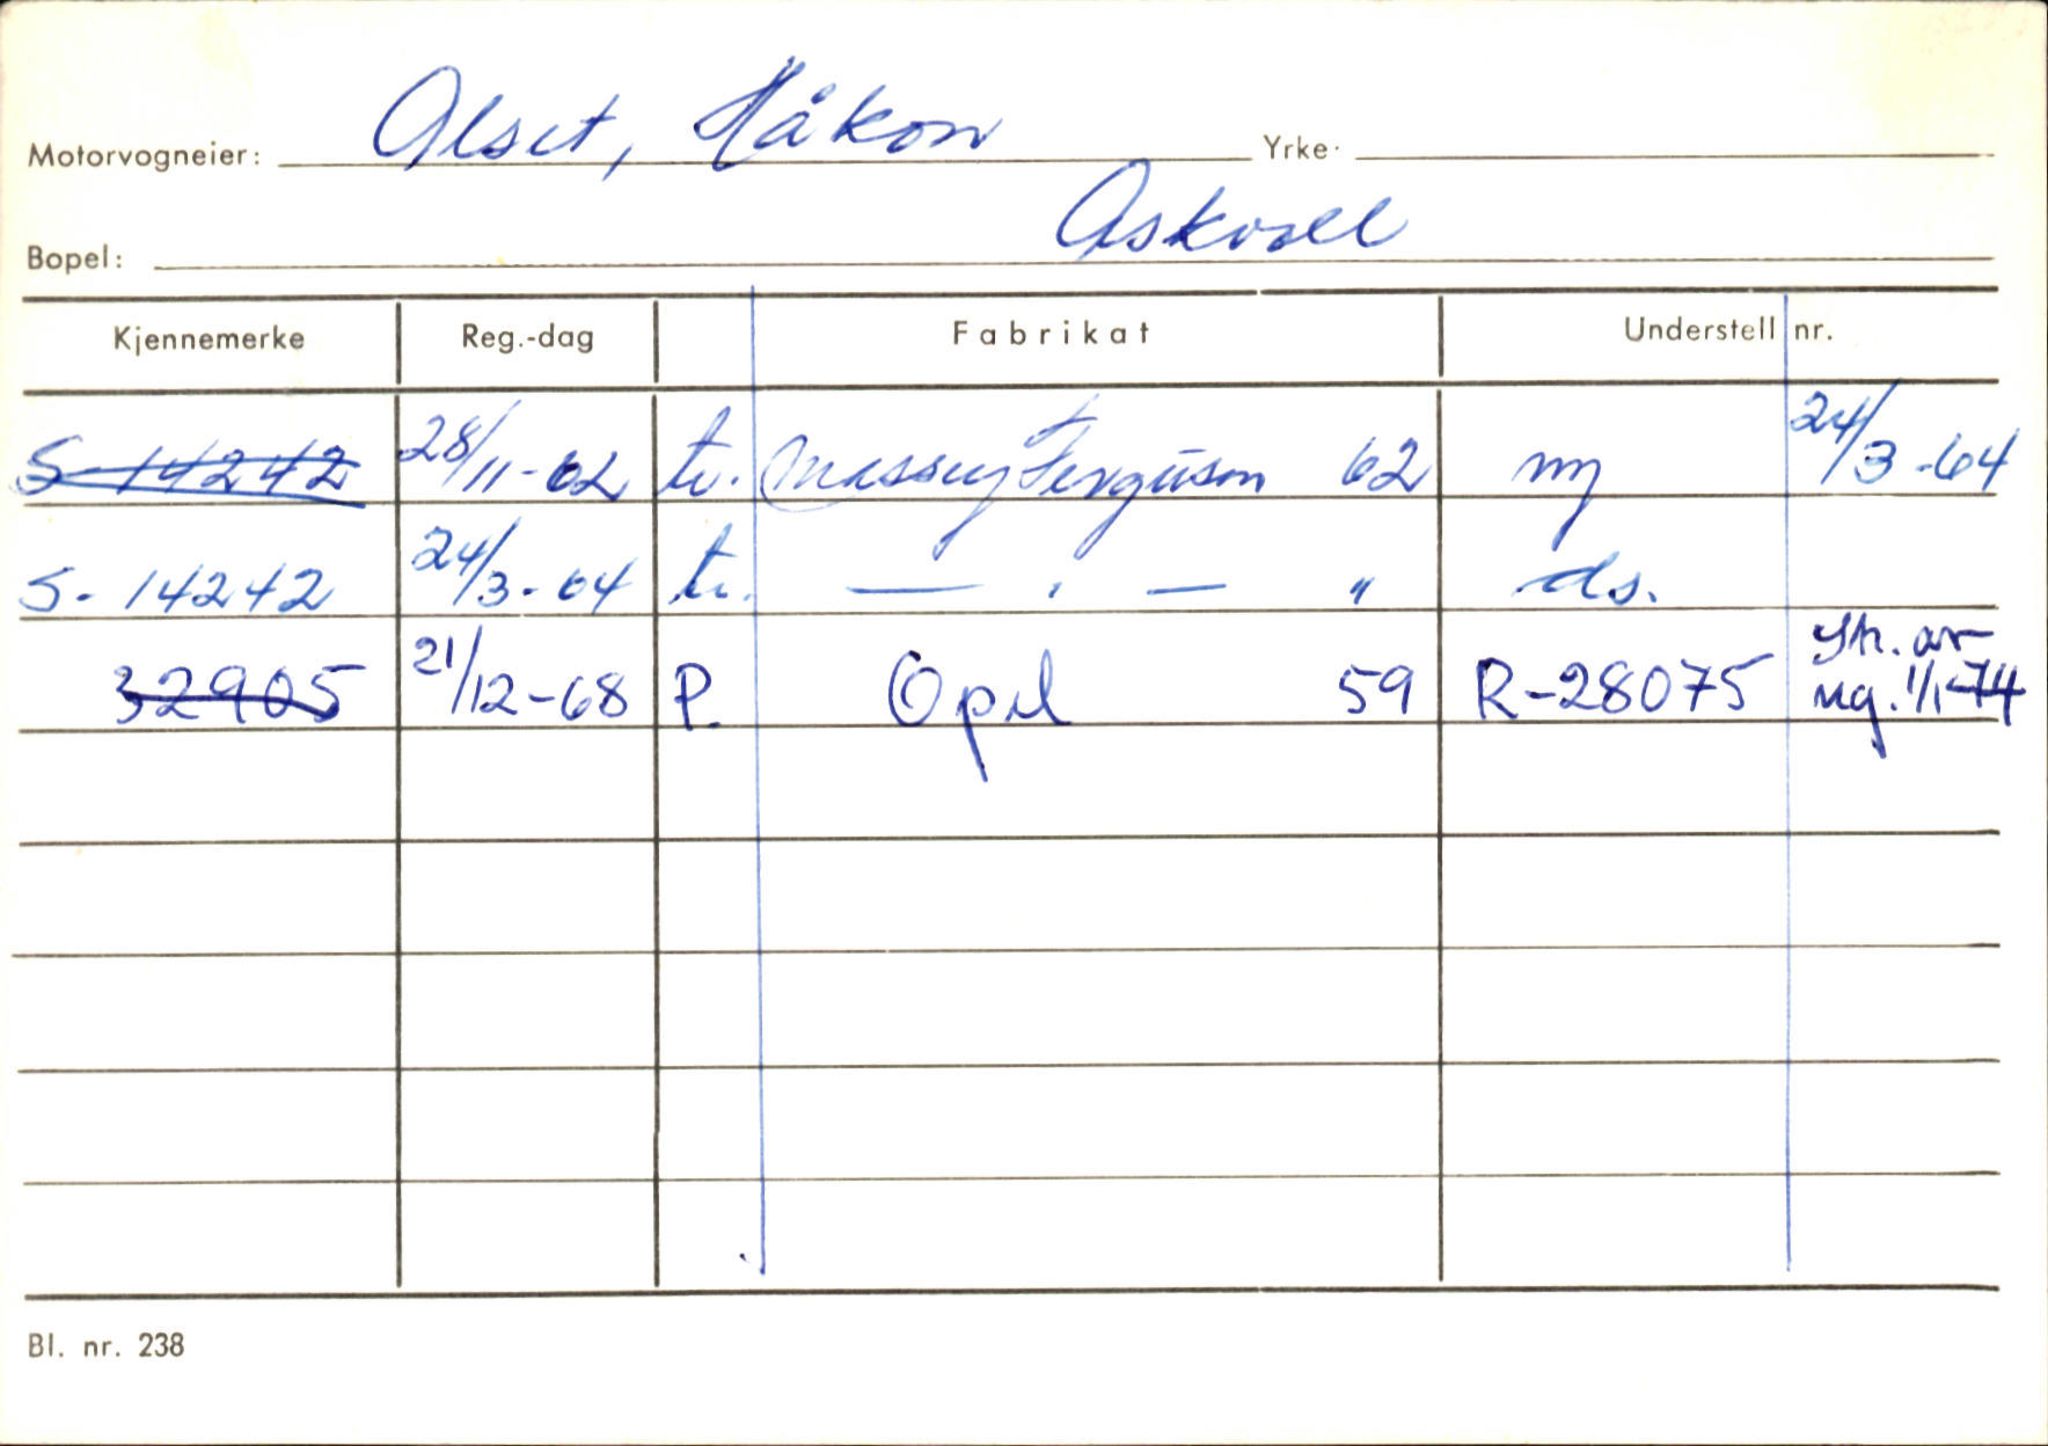 Motorvogneier: Alset, Håkon Yrke:
Bopel: Askvoll
Kjennemerke Reg.-dag Fabrikat Understell nr.
S-14242 28/11-62 tr. Massey Ferguson 62 ny 24/3-64
S-14242 24/3-64 tr. — " — " ds.
32905 21/12-68 P. Opel 59 R-28075 Str. av
reg. 1/1-74
Bl. nr. 238